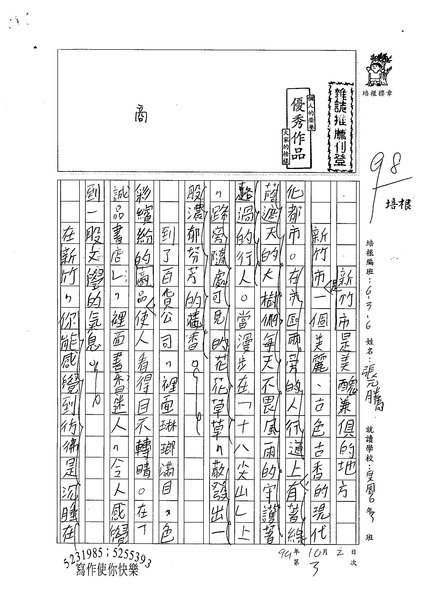 培根標章
雜誌推薦刊登
個人的榮譽
優秀作品
大家的榜樣
商
98
培根
培根編班:6-3-6 姓名:張 騰 就讀學校: 國 6年 班
新竹市是美醜兼俱的地方
新竹市是一個美麗、古色古香的現代
化都市。在市區兩旁的人行道上有著綠
蔭遮天的大樹們每天不畏風雨的守護著
路過的行人。當漫步在「十八尖山」上
,路旁隨處可見的花花草草,散發出一
股濃郁芬芳的花香。
到了百貨公司,裡面琳瑯滿目,色
彩繽紛的商品使人看得目不轉睛。在「
誠品書店」,裡面書香迷人,令人感覺
到一股文學的氣息。
在新竹,你能感覺到彷彿是沉睡在
99年10月2日
第3次
5231985;5255393
寫作使你快樂